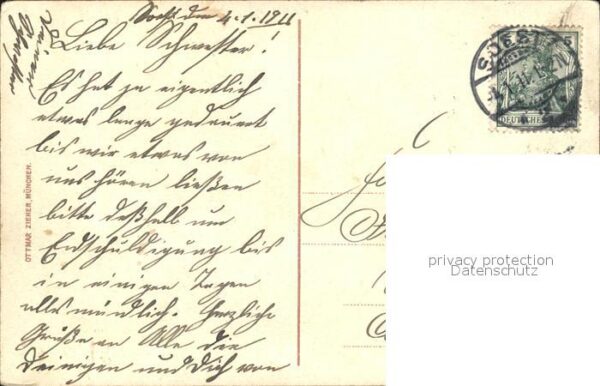 Soest den 4.1.1911
Liebe Schwester!
Es hat ja eigentlich
etwas lange gedauert
bis wir etwas von
uns hören ließen
bitte deßhalb um
Endschuldigung bis
in einigen Tagen
alles mündlich. Herzliche
Grüße an Alle die
Deinigen und Dich von
OTTMAR ZIEHER, MÜNCHEN.
SOEST
DEUTSCHES
privacy protection
Datenschutz